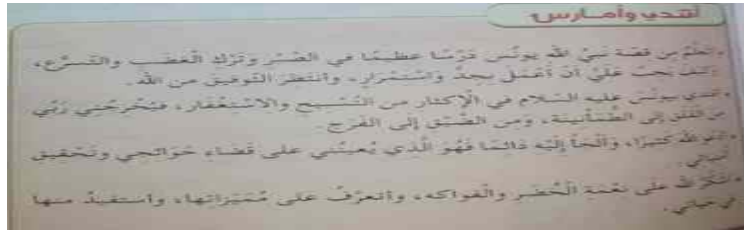 أقتدي وأمارس
• أتعلم من قصة نبي الله يونس درسا عظيما في الصبر وترك الغضب والتسرع،
وكيف يجب علي أن أعمل بجد واستمرار، وأنتظر التوفيق من الله.
• أقتدي بيونس عليه السلام في الإكثار من التسبيح والاستغفار، فيخرجني ربي
من القلق إلى الطمأنينة، ومن الضيق إلى الفرج.
• أدعو الله كثيرا، وألجأ إليه دائما فهو الذي يعينني على قضاء حوائجي وتحقيق
أمنياتي.
• أشكر الله على نعمة الخضر والفواكه، وأتعرف على مميزاتها، وأستفيد منها
في حياتي.